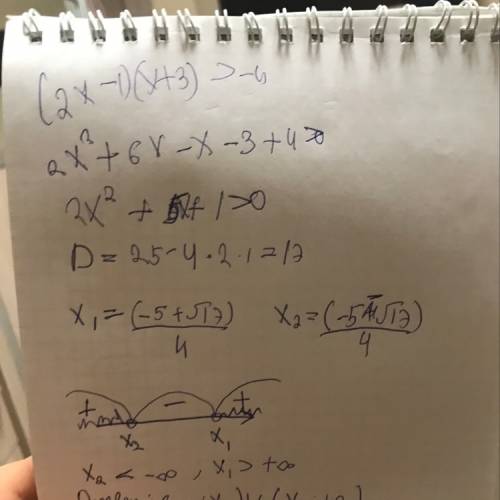 (2x-1)(x+3) > -4
2x² + 6x - x - 3 + 4 > 0
2x² + 5x + 1 > 0
D = 25 - 4 · 2 · 1 = 17
x₁ = (-5 + √17) / 4    x₂ = (-5 - √17) / 4
+ - +
x₂ x₁
x₂ < -∞ , x₁ > +∞